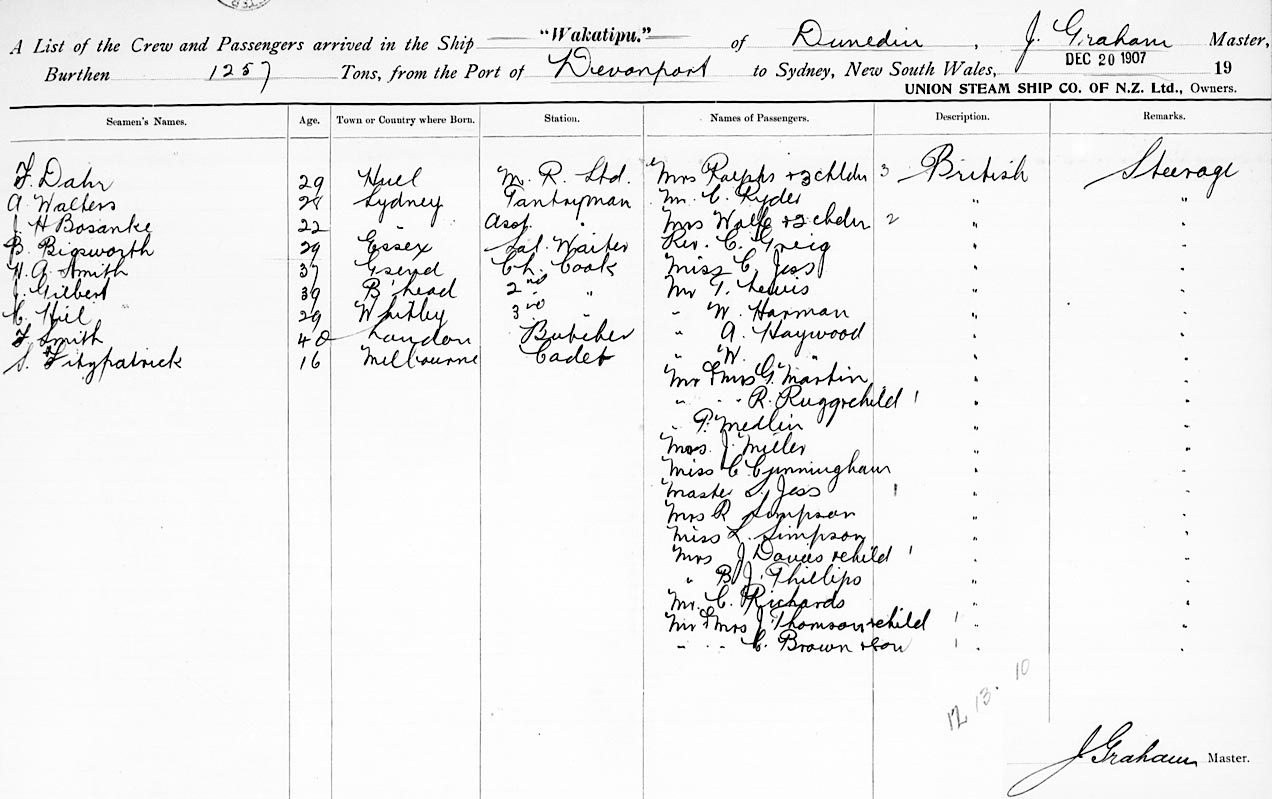 A List of the Crew and Passengers arrived in the Ship "Wakatipu." of Dunedin, J. Graham Master,
Burthen 1257 Tons, from the Port of Devonport to Sydney, New South Wales, DEC 20 1907 19
UNION STEAM SHIP CO. OF N.Z. Ltd., Owners.
Seamen's Names. Age. Town or Country where Born. Station. Names of Passengers. Description. Remarks.
F. Dahr 29 Hull M. R. Std. Mrs Ralphs & 3 chldn 3 British Steerage
A. Walters 28 Sydney Pantryman Mr. C. Ryder " "
J H Bosanke 22 Asst. " Mrs Wolfe & 2 chdn 2 " "
B. Bigsworth 29 Essex Sal. Waiter Rev. C. Greig " "
H. A. Smith 37 Gsend Ch. Cook Miss C. Jess " "
J. Gilbert 39 B'head 2nd " Mr T. Lewis " "
C. Hill 29 Whitby 3rd " W. Harman " "
F. Smith 40 London Butcher " A. Haywood " "
S. Fitzpatrick 16 Melbourne Cadet " W. " " "
Mr & Mrs G. Martin " "
" " R. Rugg & child 1 " "
" P. Medlin " "
Mrs. J. Miller " "
Miss C Cunningham " "
Master S. Jess 1 " "
Mrs R Simpson " "
Miss L. Simpson " "
Mrs J Davies & child 1 " "
" B J. Phillips " "
Mr. C. Richards " "
Mr & Mrs J. Thomson & child 1 " "
" " C. Brown & son 1 " "
12 13. 10
J. Graham Master.